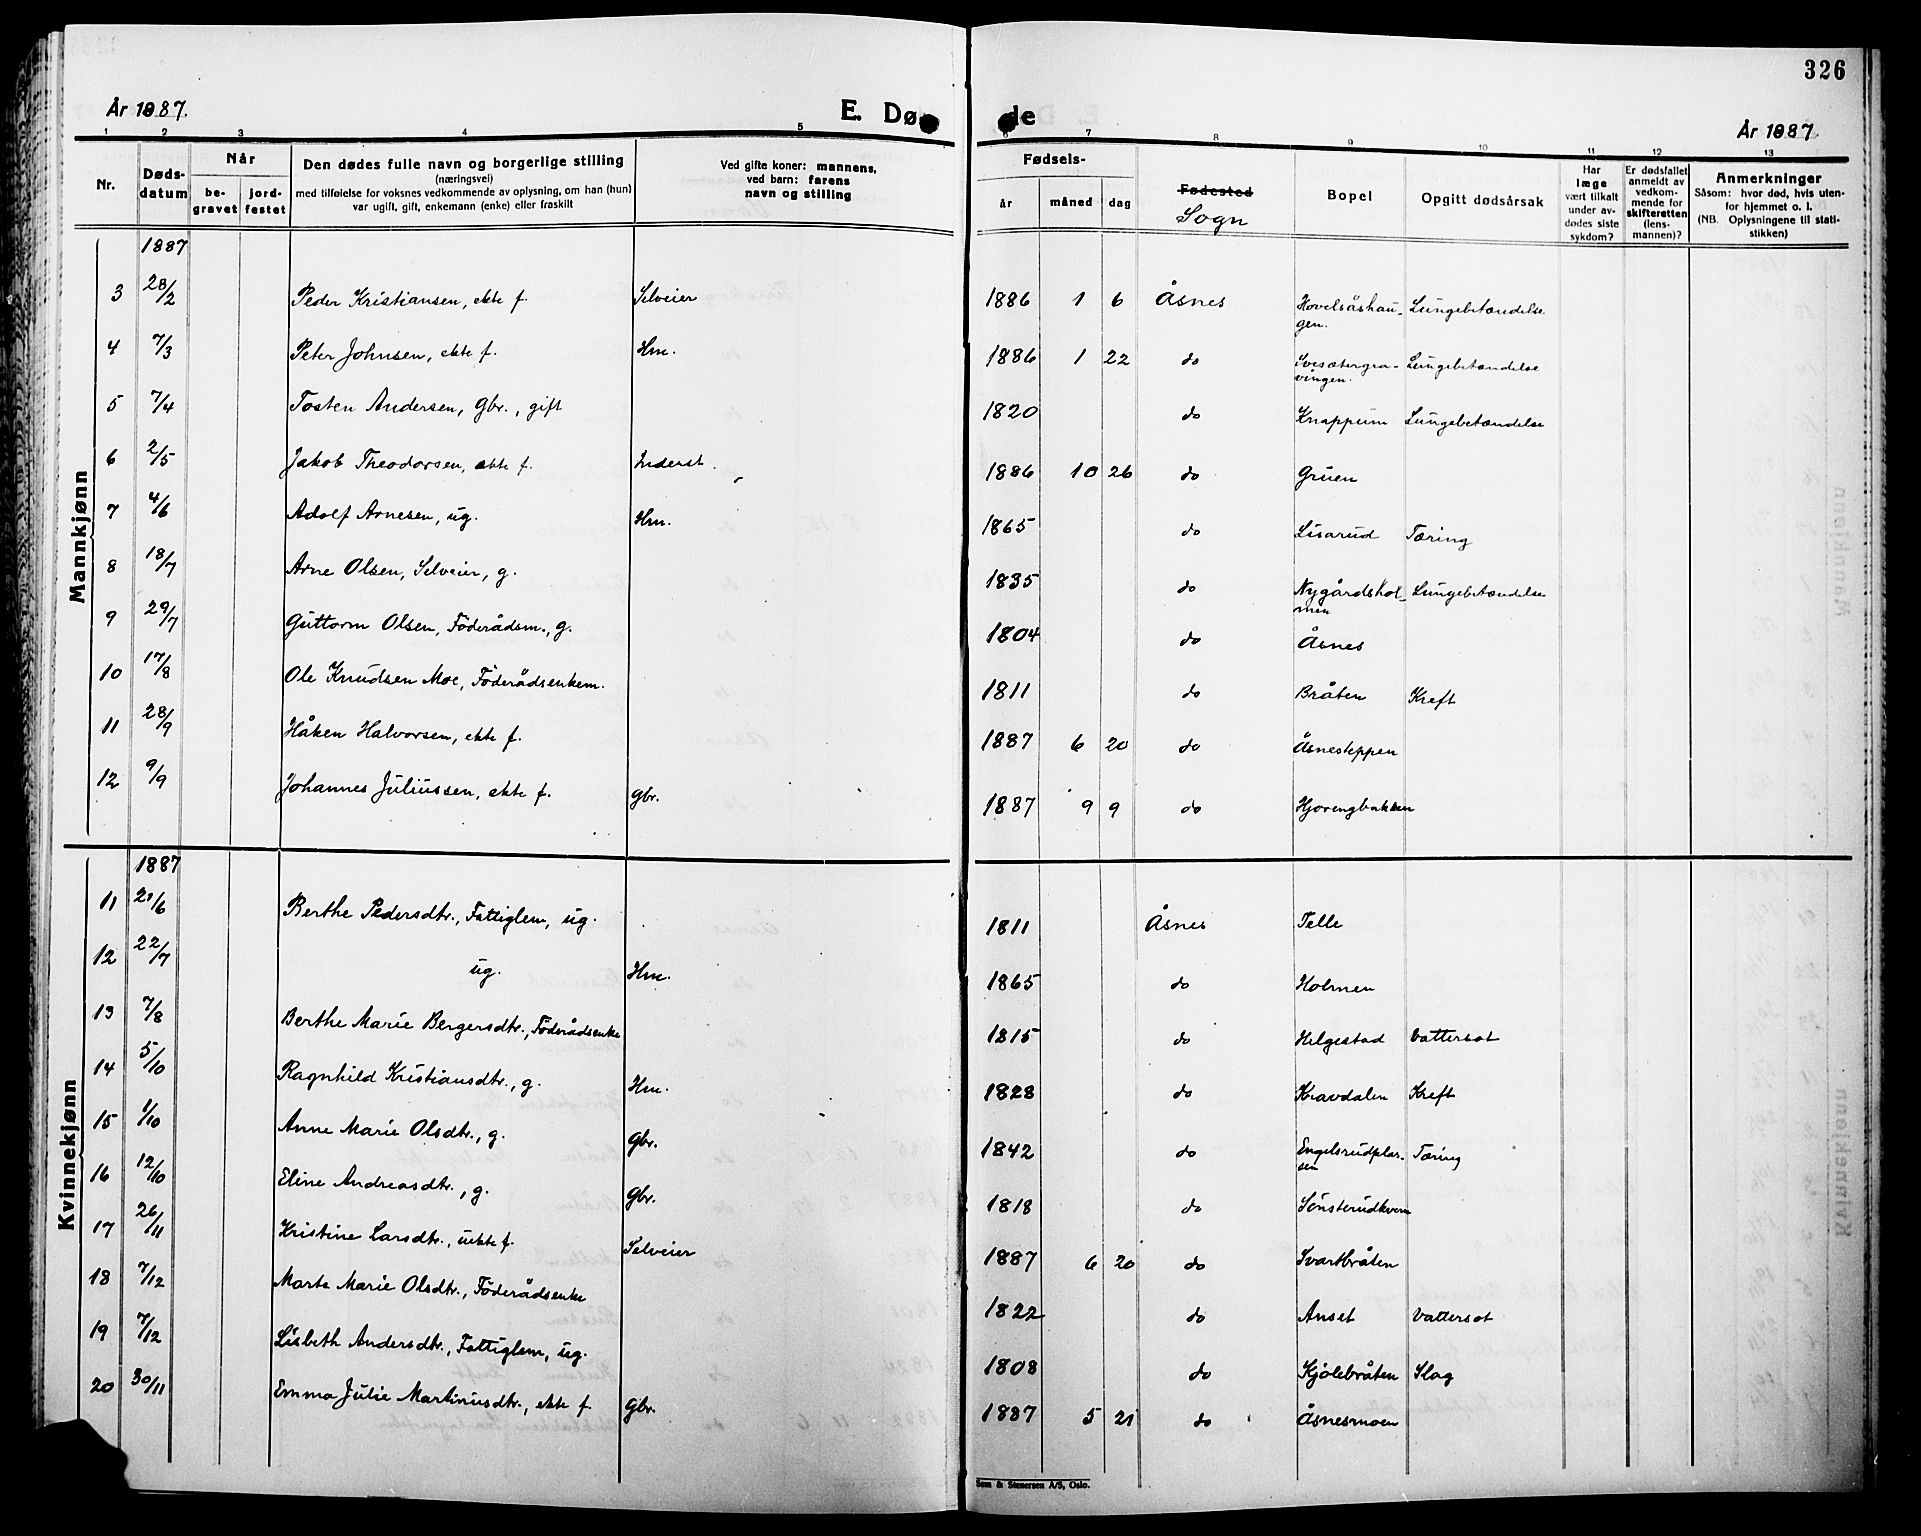 326
År 1887.
E. Dø
de
År 1887.
1 2 3 4 5 6 7 8 9 10 11 12 13
Nr.
Døds-
datum
Når
be-
gravet
jord-
festet
Den dødes fulle navn og borgerlige stilling
(næringsvei)
med tilføielse for voksnes vedkommende av oplysning, om han (hun)
var ugift, gift, enkemann (enke) eller fraskilt
Ved gifte koner: mannens,
ved barn: farens
navn og stilling
Fødsels-
år
måned
dag
Fødested
Sogn
Bopel
Opgitt dødsårsak
Har
læge
vært tilkalt
under av-
dødes siste
sykdom?
Er dødsfallet
anmeldt av
vedkom-
mende for
skifteretten
(lens-
mannen)?
Anmerkninger
Såsom: hvor død, hvis uten-
for hjemmet o. l.
(NB. Oplysningene til stati-
stikken)
Mannkjønn
1887
3 28/2 Peder Kristiansen, ekte f. Selveier 1886 1 6 Åsnes Hovelsåshau- Lungebetændelse
gen.
4 7/3 Peter Johnsen, ekte f. Hm. 1886 1 22 do Svesætergra- Lungebetændelse
vingen.
5 7/4 Tosten Andersen, Gbr., gift 1820 do Knappum Lungebetændelse
6 2/5 Jakob Theodorsen, ekte f. Inderst. 1886 10 26 do Gruen
7 4/6 Adolf Arnesen, ug. Hm. 1865 do Lisarud Tæring
8 18/7 Arne Olsen, Selveier, g. 1835 do Nygårdshol- Lungebetændelse
men
9 29/7 Guttorm Olsen, Föderådsm., g. 1804 do Åsnes
10 17/8 Ole Knudsen Moe, Föderådsenkem. 1811 do Bråten Kreft
11 28/9 Håken Halvorsen, ekte f. 1887 6 20 do Åsnesteppen
12 9/9 Johannes Juliussen, ekte f. Gbr. 1887 9 9 do Hjorengbakken
Kvinnekjønn
1887
11 21/6 Berthe Pedersdtr., Fattiglem, ug. 1811 Åsnes Telle
12 22/7 ug. Hm. 1865 do Holmen
13 7/8 Berthe Marie Bergersdtr., Föderådsenke 1815 do Helgestad Vattersot
14 5/10 Ragnhild Kristiansdtr., g. Hm. 1828 do Kravdalen Kreft
15 1/10 Anne Marie Olsdtr., g. Gbr. 1842 do Engelsrudplas- Tæring
sen
16 12/10 Eline Andreasdtr., g. Gbr. 1818 do Sönsterudkvern
17 26/11 Kristine Larsdtr., uekte f. Selveier 1887 6 20 do Svartbråten
18 7/12 Marte Marie Olsdtr., Föderådsenke 1822 do Anset Vattersot
19 7/12 Lisbeth Andersdtr., Fattiglem, ug. 1808 do Kjölebråten Slag
20 30/11 Emma Julie Martinusdtr., ekte f. Gbr. 1887 5 21 do Åsnesmoen
Sem & Stenersen A/S, Oslo.